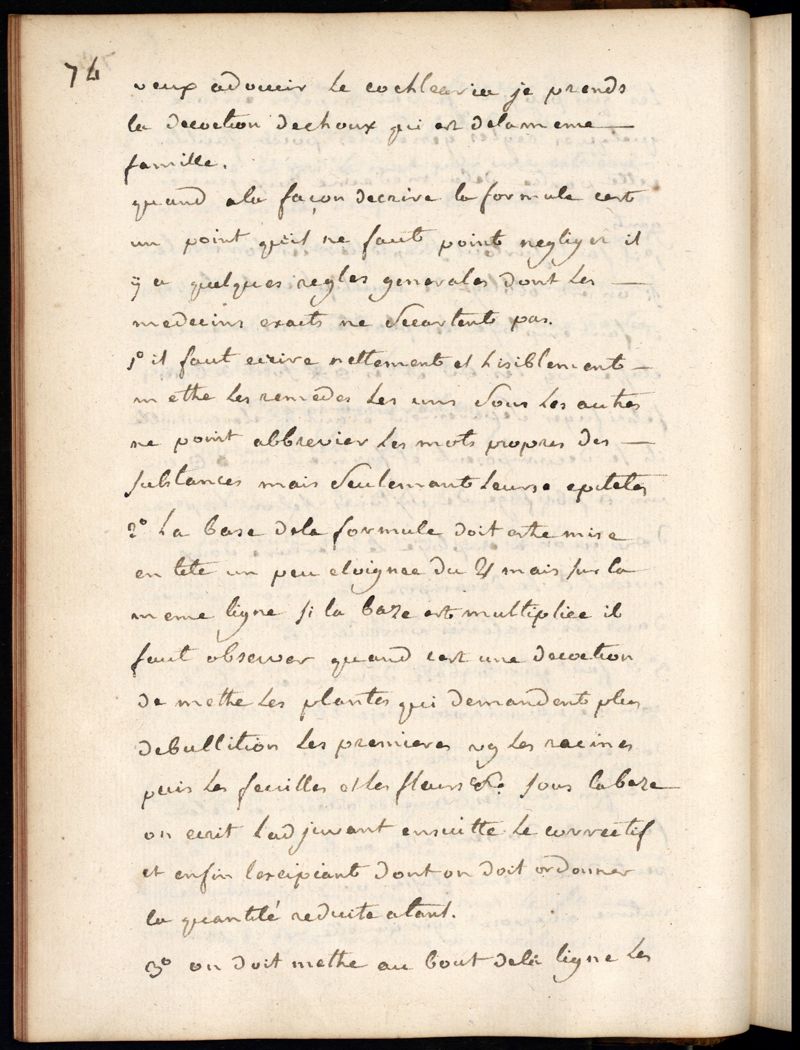 74
veux adoucir le cochlearia je prends
la decoction dechoux qui est delameme —
famille.
quand ala façon decrire la formule cest
un point qu'il ne faut point negliger il
ÿ a quelques regles generales dont les —
medecins exacts ne secartent pas.
1° il faut ecrire nettement et lisiblement —
metre les remedes les uns sous les autres
ne point abbrevier les mots propres des —
substances mais seulemant leurs epitetes
2° la base dela formule doit estre mise
en tete un peu eloignee du ♃ mais sur la
meme ligne si la baze est multipliee il
faut observer quand cest une decoction
de metre les plantes qui demandent plus
debullition les premieres vg les racines
puis les feuilles et les fleurs &c. sous labaze
on ecrit ladjuvant ensuitte le correctif
et enfin lexcipiant dont on doit ordonner
la quantité reduite atant.
3° on doit metre au bout dela ligne les